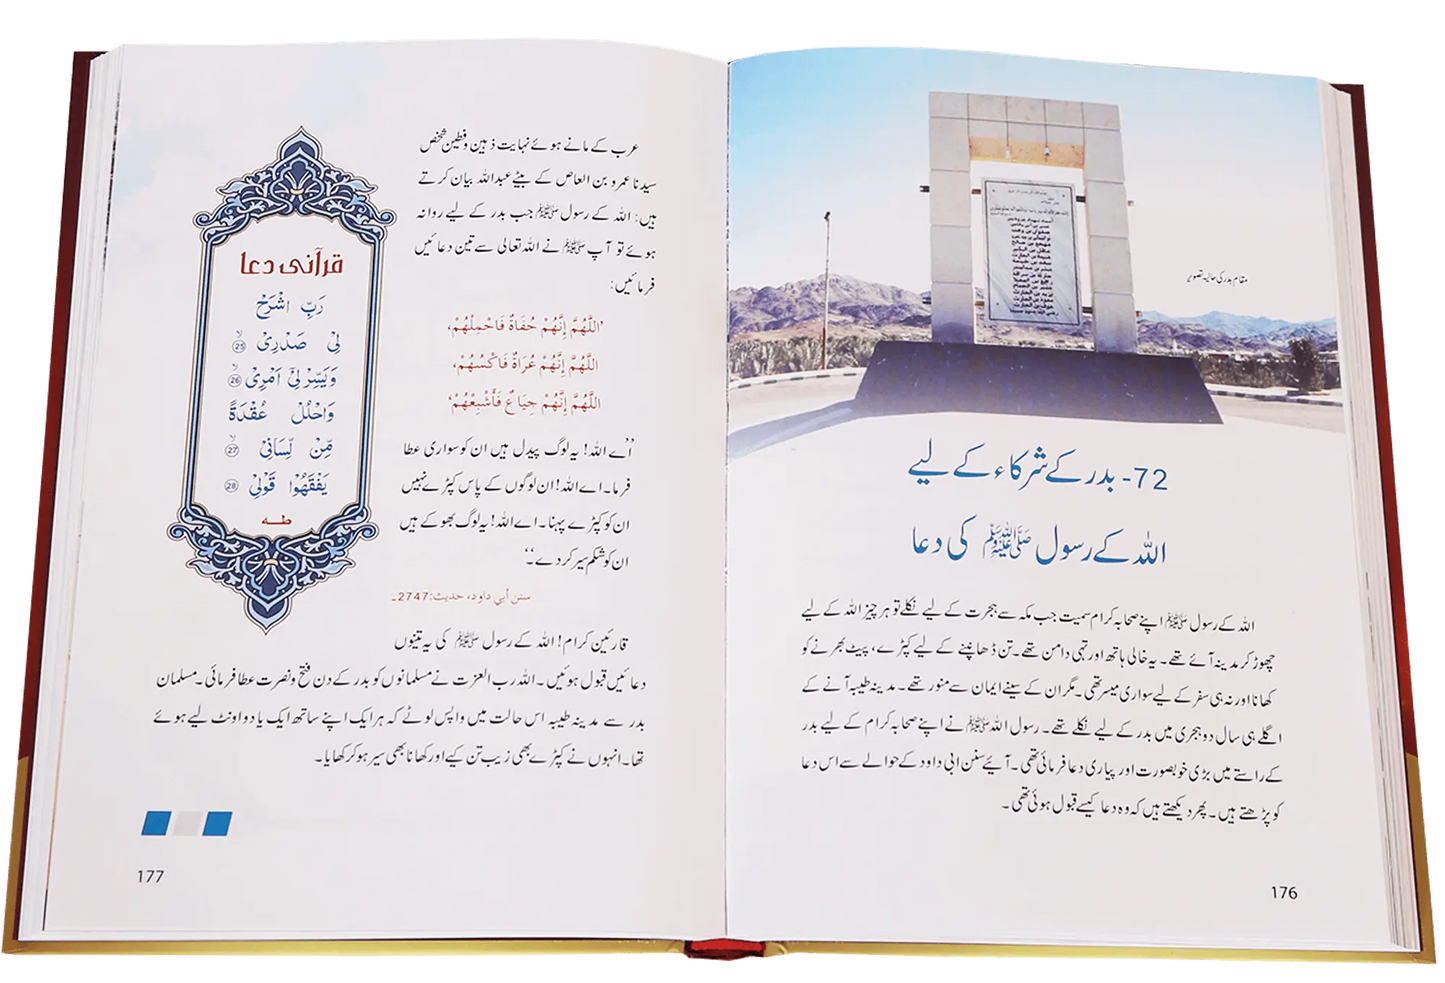 مقام بدر کی حالیہ تصویر
72- بدر کے شرکاء کے لیے
اللہ کے رسول ﷺ کی دعا
اللہ کے رسول ﷺ اپنے صحابہ کرام سمیت جب مکہ سے ہجرت کے لیے نکلے تو ہر چیز اللہ کے لیے
چھوڑ کر مدینہ آئے تھے۔ یہ خالی ہاتھ اور تہی دامن تھے۔ تن ڈھانپنے کے لیے کپڑے، پیٹ بھرنے کو
کھانا اور نہ ہی سفر کے لیے سواری میسر تھی۔ مگر ان کے سینے ایمان سے منور تھے۔ مدینہ طیبہ آنے کے
اگلے ہی سال دو ہجری میں بدر کے لیے نکلے تھے۔ رسول اللہ ﷺ نے اپنے صحابہ کرام کے لیے بدر
کے راستے میں بڑی خوبصورت اور پیاری دعا فرمائی تھی۔ آیئے سنن ابی داود کے حوالے سے اس دعا
کو پڑھتے ہیں۔ پھر دیکھتے ہیں کہ وہ دعا کیسے قبول ہوئی تھی۔
176
عرب کے مانے ہوئے نہایت ذہین و فطین شخص
سیدنا عمرو بن العاص کے بیٹے عبداللہ بیان کرتے
ہیں: اللہ کے رسول ﷺ جب بدر کے لیے روانہ
ہوئے تو آپ ﷺ نے اللہ تعالی سے تین دعائیں
فرمائیں:
’اللَّهُمَّ إِنَّهُمْ حُفَاةٌ فَاحْمِلْهُمْ،
اللَّهُمَّ إِنَّهُمْ عُرَاةٌ فَاكْسُهُمْ،
اللَّهُمَّ إِنَّهُمْ جِيَاعٌ فَأَشْبِعْهُمْ‘
’’اے اللہ! یہ لوگ پیدل ہیں ان کو سواری عطا
فرما۔ اے اللہ! ان لوگوں کے پاس کپڑے نہیں
ان کو کپڑے پہنا۔ اے اللہ! یہ لوگ بھوکے ہیں
ان کو شکم سیر کر دے۔‘‘
سنن أبي داود، حديث: 2747۔
قارئین کرام! اللہ کے رسول ﷺ کی یہ تینوں
دعائیں قبول ہوئیں۔ اللہ رب العزت نے مسلمانوں کو بدر کے دن فتح و نصرت عطا فرمائی۔ مسلمان
بدر سے مدینہ طیبہ اس حالت میں واپس لوٹے کہ ہر ایک اپنے ساتھ ایک یا دو اونٹ لیے ہوئے
تھا۔ انہوں نے کپڑے بھی زیب تن کیے اور کھانا بھی سیر ہو کر کھایا۔
قرآنی دعا
رَبِّ اشْرَحْ
لِیْ صَدْرِیْ ۙ25
وَیَسِّرْ لِیْۤ اَمْرِیْ ۙ26
وَاحْلُلْ عُقْدَةً
مِّنْ لِّسَانِیْ ۙ27
یَفْقَهُوْا قَوْلِیْ 28
طه
177